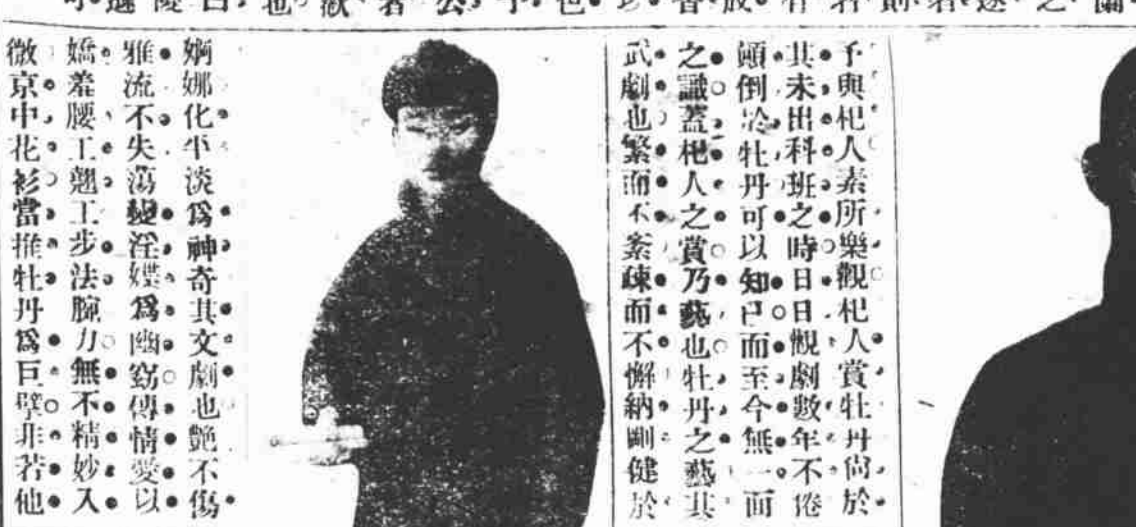 予與杞人素所樂觀杞人賞牡丹尙於
其未出科班之時日日觀劇數年不倦
顚倒於牡丹可以知已而至今無一面
之識蓋杞人之賞乃藝也牡丹之藝其
武劇也繁而不紊疎而不懈納剛健於
婀娜化平淡爲神奇其文劇也艶不傷
雅流不失蕩變淫媟爲幽窈傳情愛以
嬌羞腰工翹工步法腕力無不精妙入
微京中花衫當推牡丹爲巨擘非若他